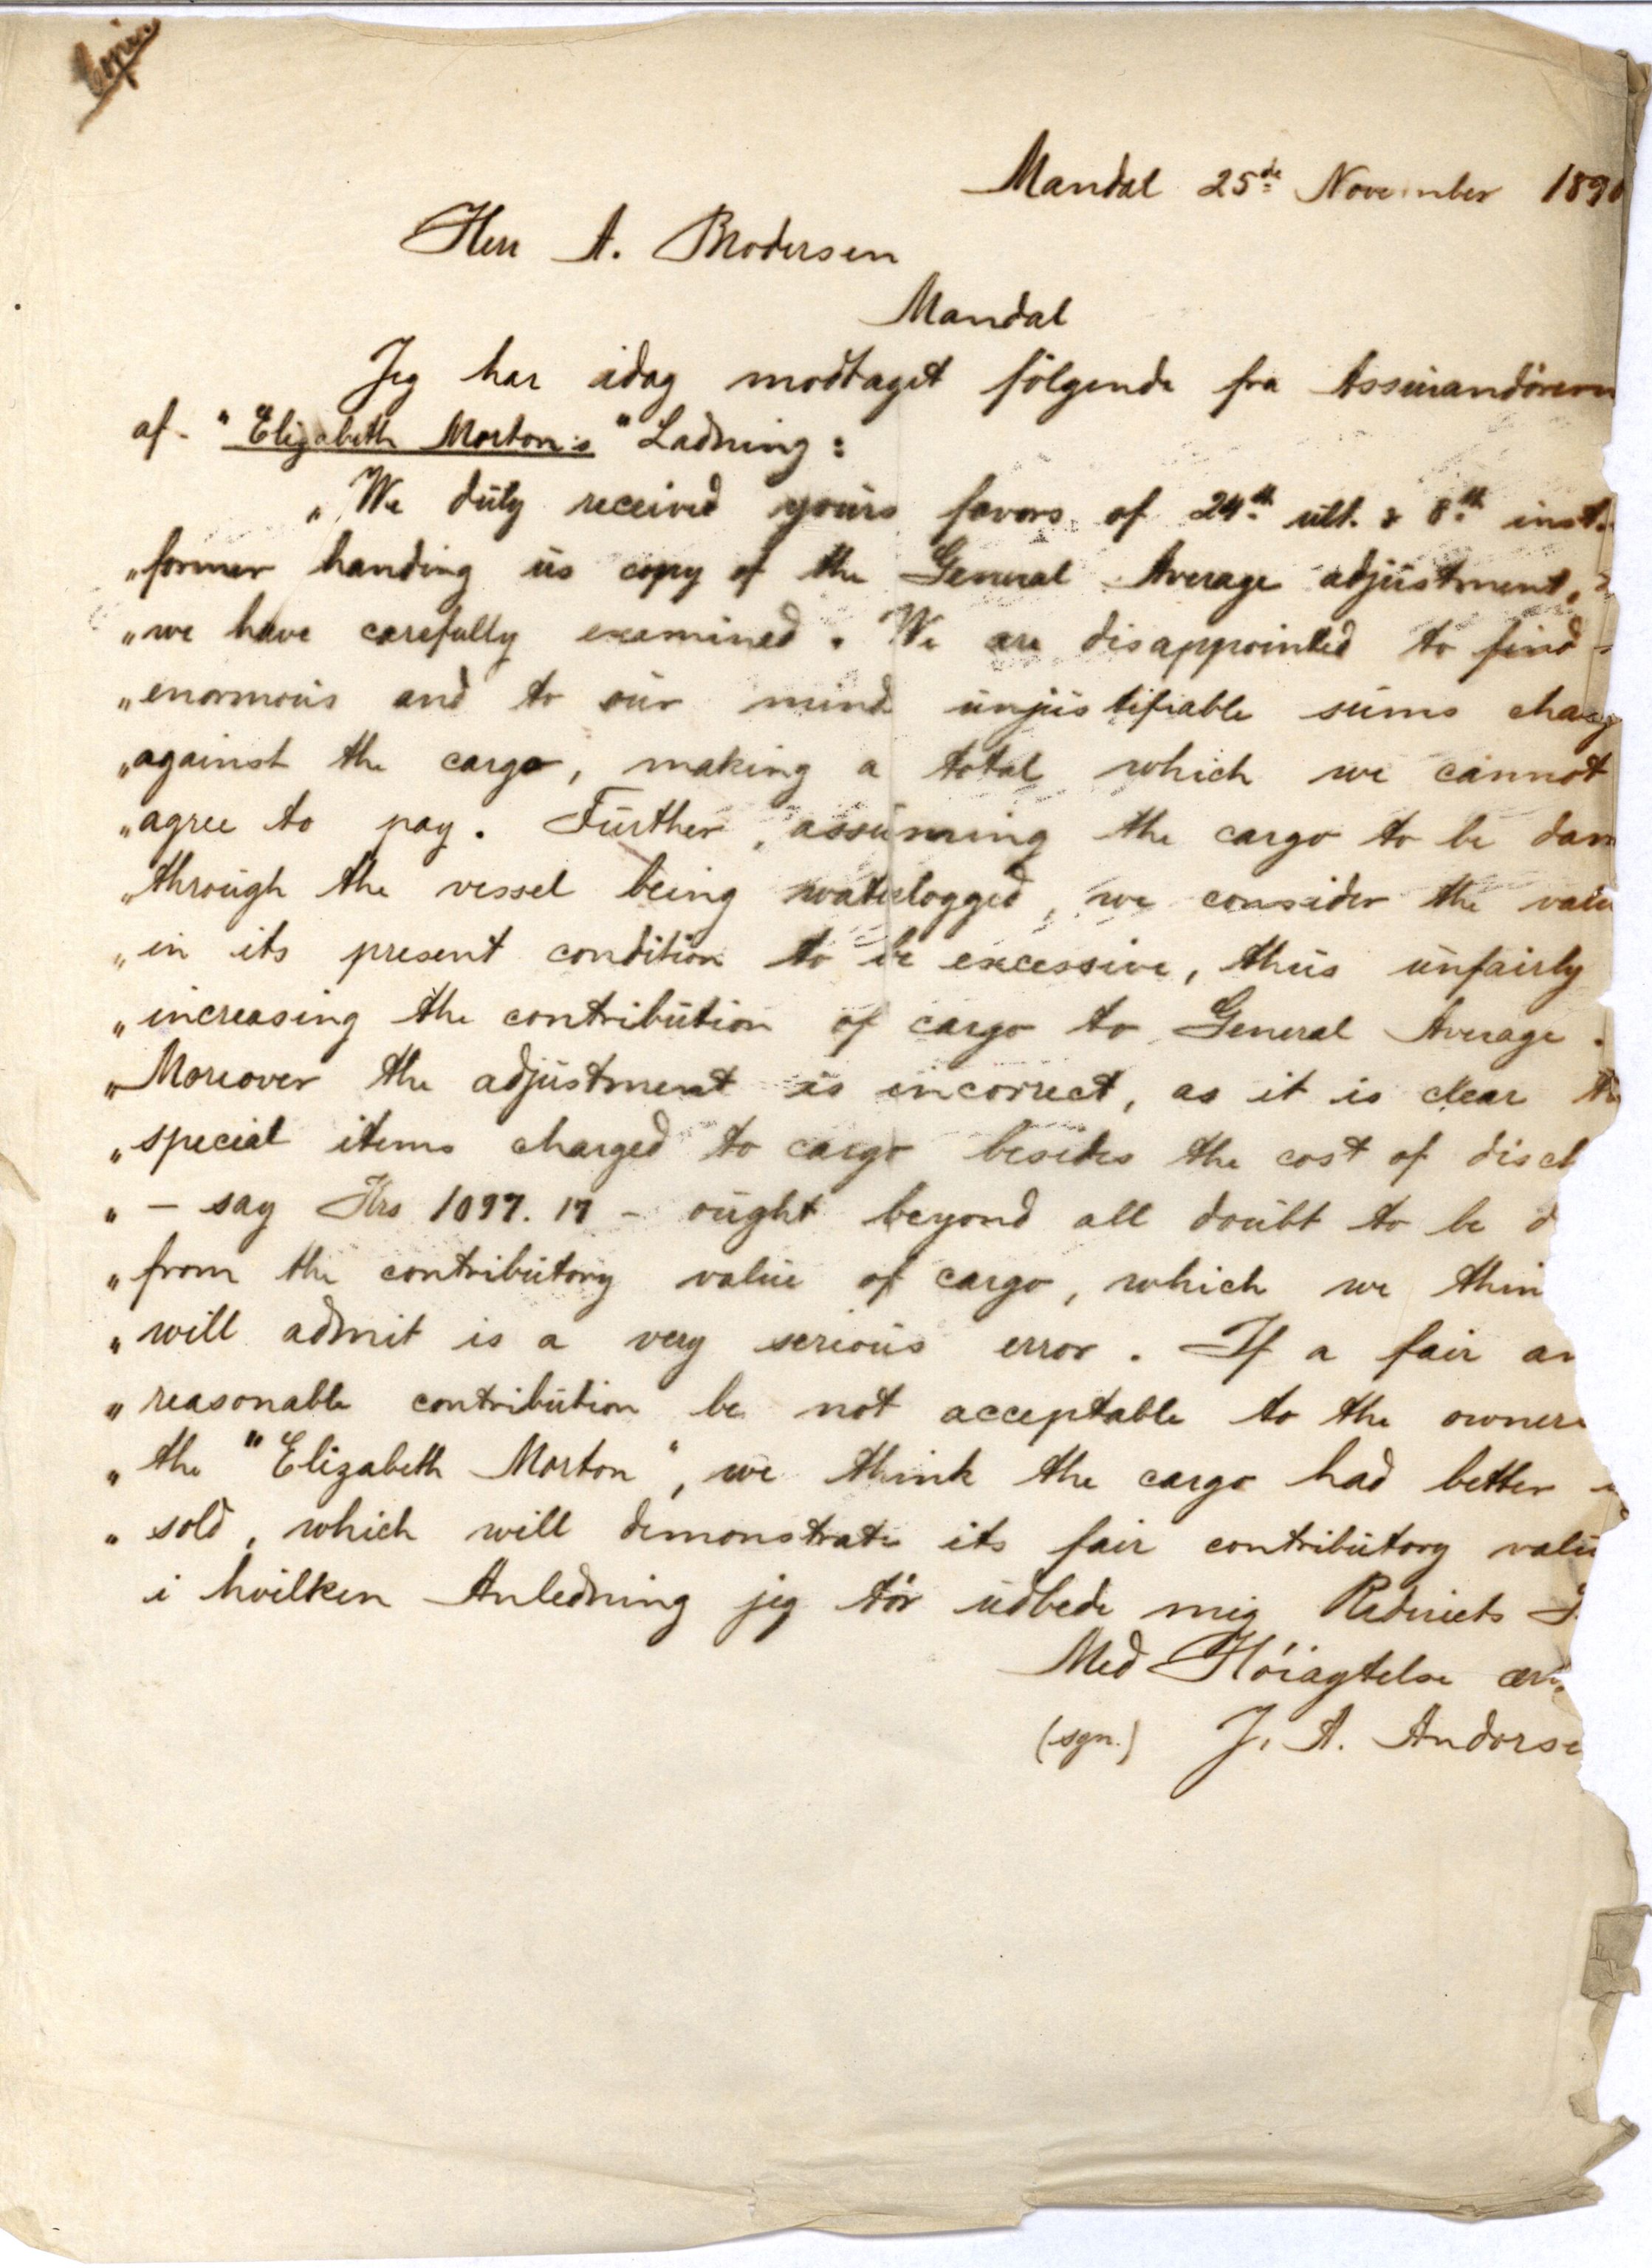 Copie
Mandal 25de November 1890
Herr A. Brodersen
Mandal
Jeg har idag modtaget fölgende fra Assurandörern
af "Elizabeth Morton's" Ladning:
"We duly received yours favors of 24th ult. & 8th inst.
"former handing us copy of the General Average adjustment,
"we have carefully examined. We are disappointed to find
"enormous and to our mind unjustifiable sums charg
"against the cargo, making a total which we cannot
"agree to pay. Further, assuming the cargo to be dam
"through the vessel being waterlogged, we consider the valu
"in its present condition to be excessive, thus unfairly
"increasing the contribution of cargo to General Average.
"Moreover the adjustment is incorrect, as it is clear th
"special items charged to cargo besides the cost of disch
"- say Krs 1097.17 - ought beyond all doubt to be d
"from the contributory value of cargo, which we thin
"will admit is a very serious error. If a fair an
"reasonable contribution be not acceptable to the owners
"the "Elizabeth Morton", we think the cargo had better
"sold, which will demonstrate its fair contributory valu
i hvilken Anledning jeg tör udbede mig Rederiets
Med Höiagtelse ær
(sgn.) J. A. Anderse